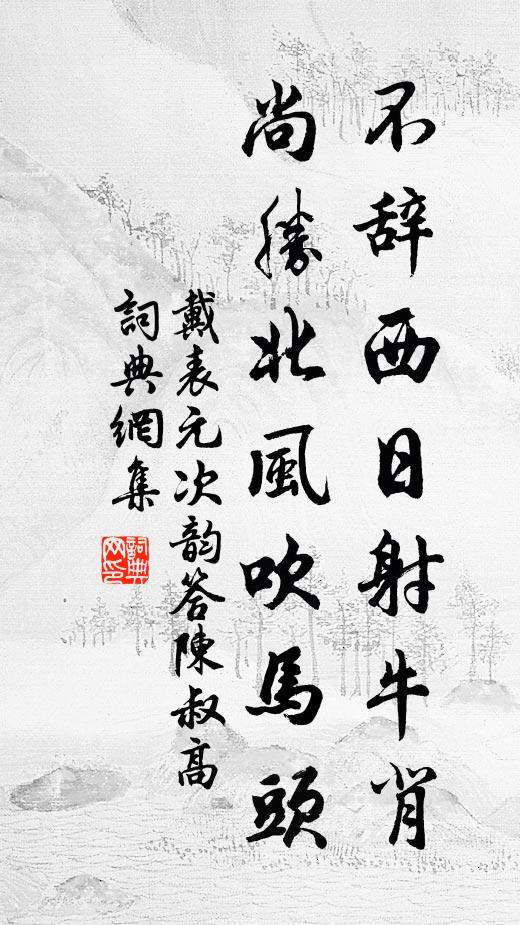 不辞西日射牛背
尚勝北風吹馬頭
戴表元次韵答陳叔高
詞典網集
詞典网印